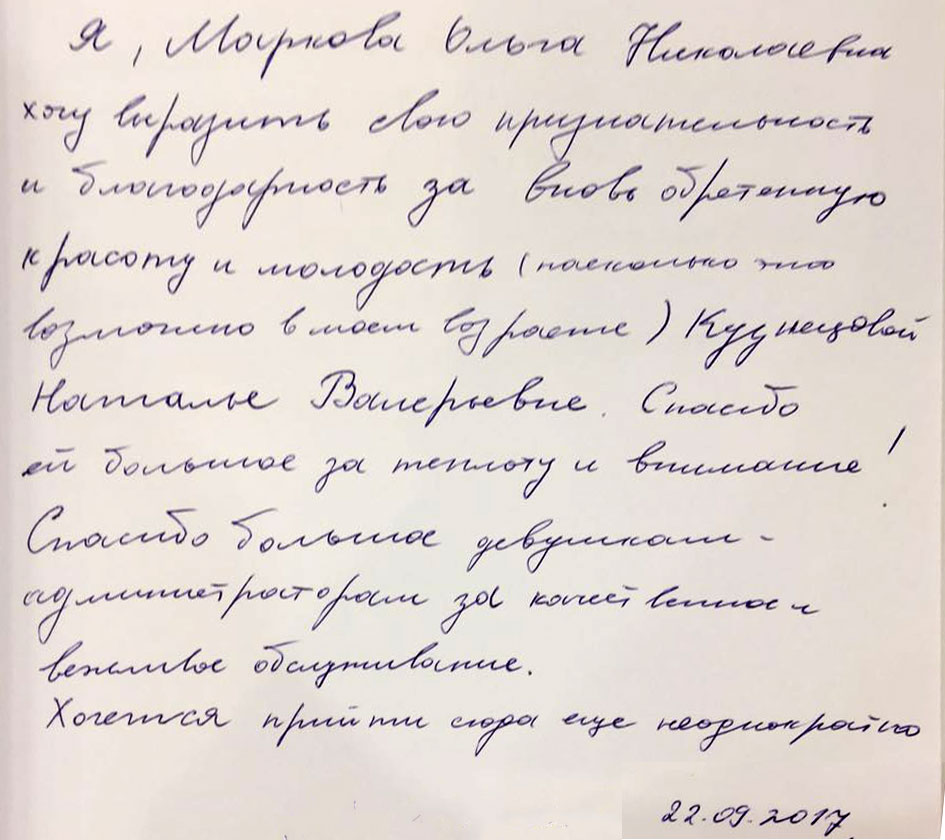 Я, Маркова Ольга Николаевна
хочу выразить свою признательность
и благодарность за вновь обретенную
красоту и молодость (насколько это
возможно в моем возрасте) Кузнецовой
Наталье Валерьевне. Спасибо
ей большое за теплоту и внимание!
Спасибо большое девушкам-
администраторам за качественное и
вежливое обслуживание.
Хочется прийти сюда еще неоднократно
22.09.2017